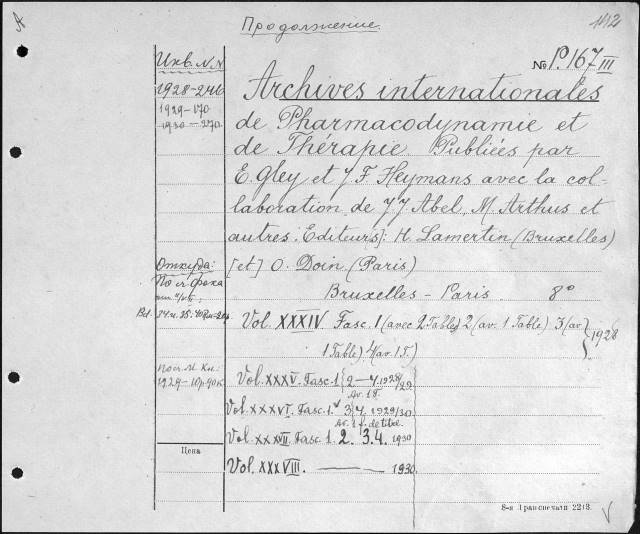 Продолжение
Инв. N N
1928-246
1929-170
1930-270
№ P.167 III
Archives internationales
de Pharmacodynamie et
de Thérapie Publiées par
E. Gley et J. F. Heymans avec la col-
laboration de J. J. Abel, M. Arthus et
autres. Editeurs]: H. Lamertin (Bruxelles)
[et] O. Doin (Paris)
Bruxelles - Paris 8º
Откуда:
Bd.
Vol. XXXIV Fasc. 1 (avec 2 Tables) 2 (av. 1 Table) 3 (av.
1 Table) 4 (av. 1 T.) } 1928
Vol. XXXV. Fasc. 1 { 2 - 4. 1928/29
Av. 1 T.
Vol. XXXVI. Fasc. 1. 3 4. 1929/30
Av. 1 f. de titre.
Vol. XXXVII. Fasc. 1. 2. 3. 4. 1930
Цена
Vol. XXXVIII. — 1930.
8-я Транспечати 2213.